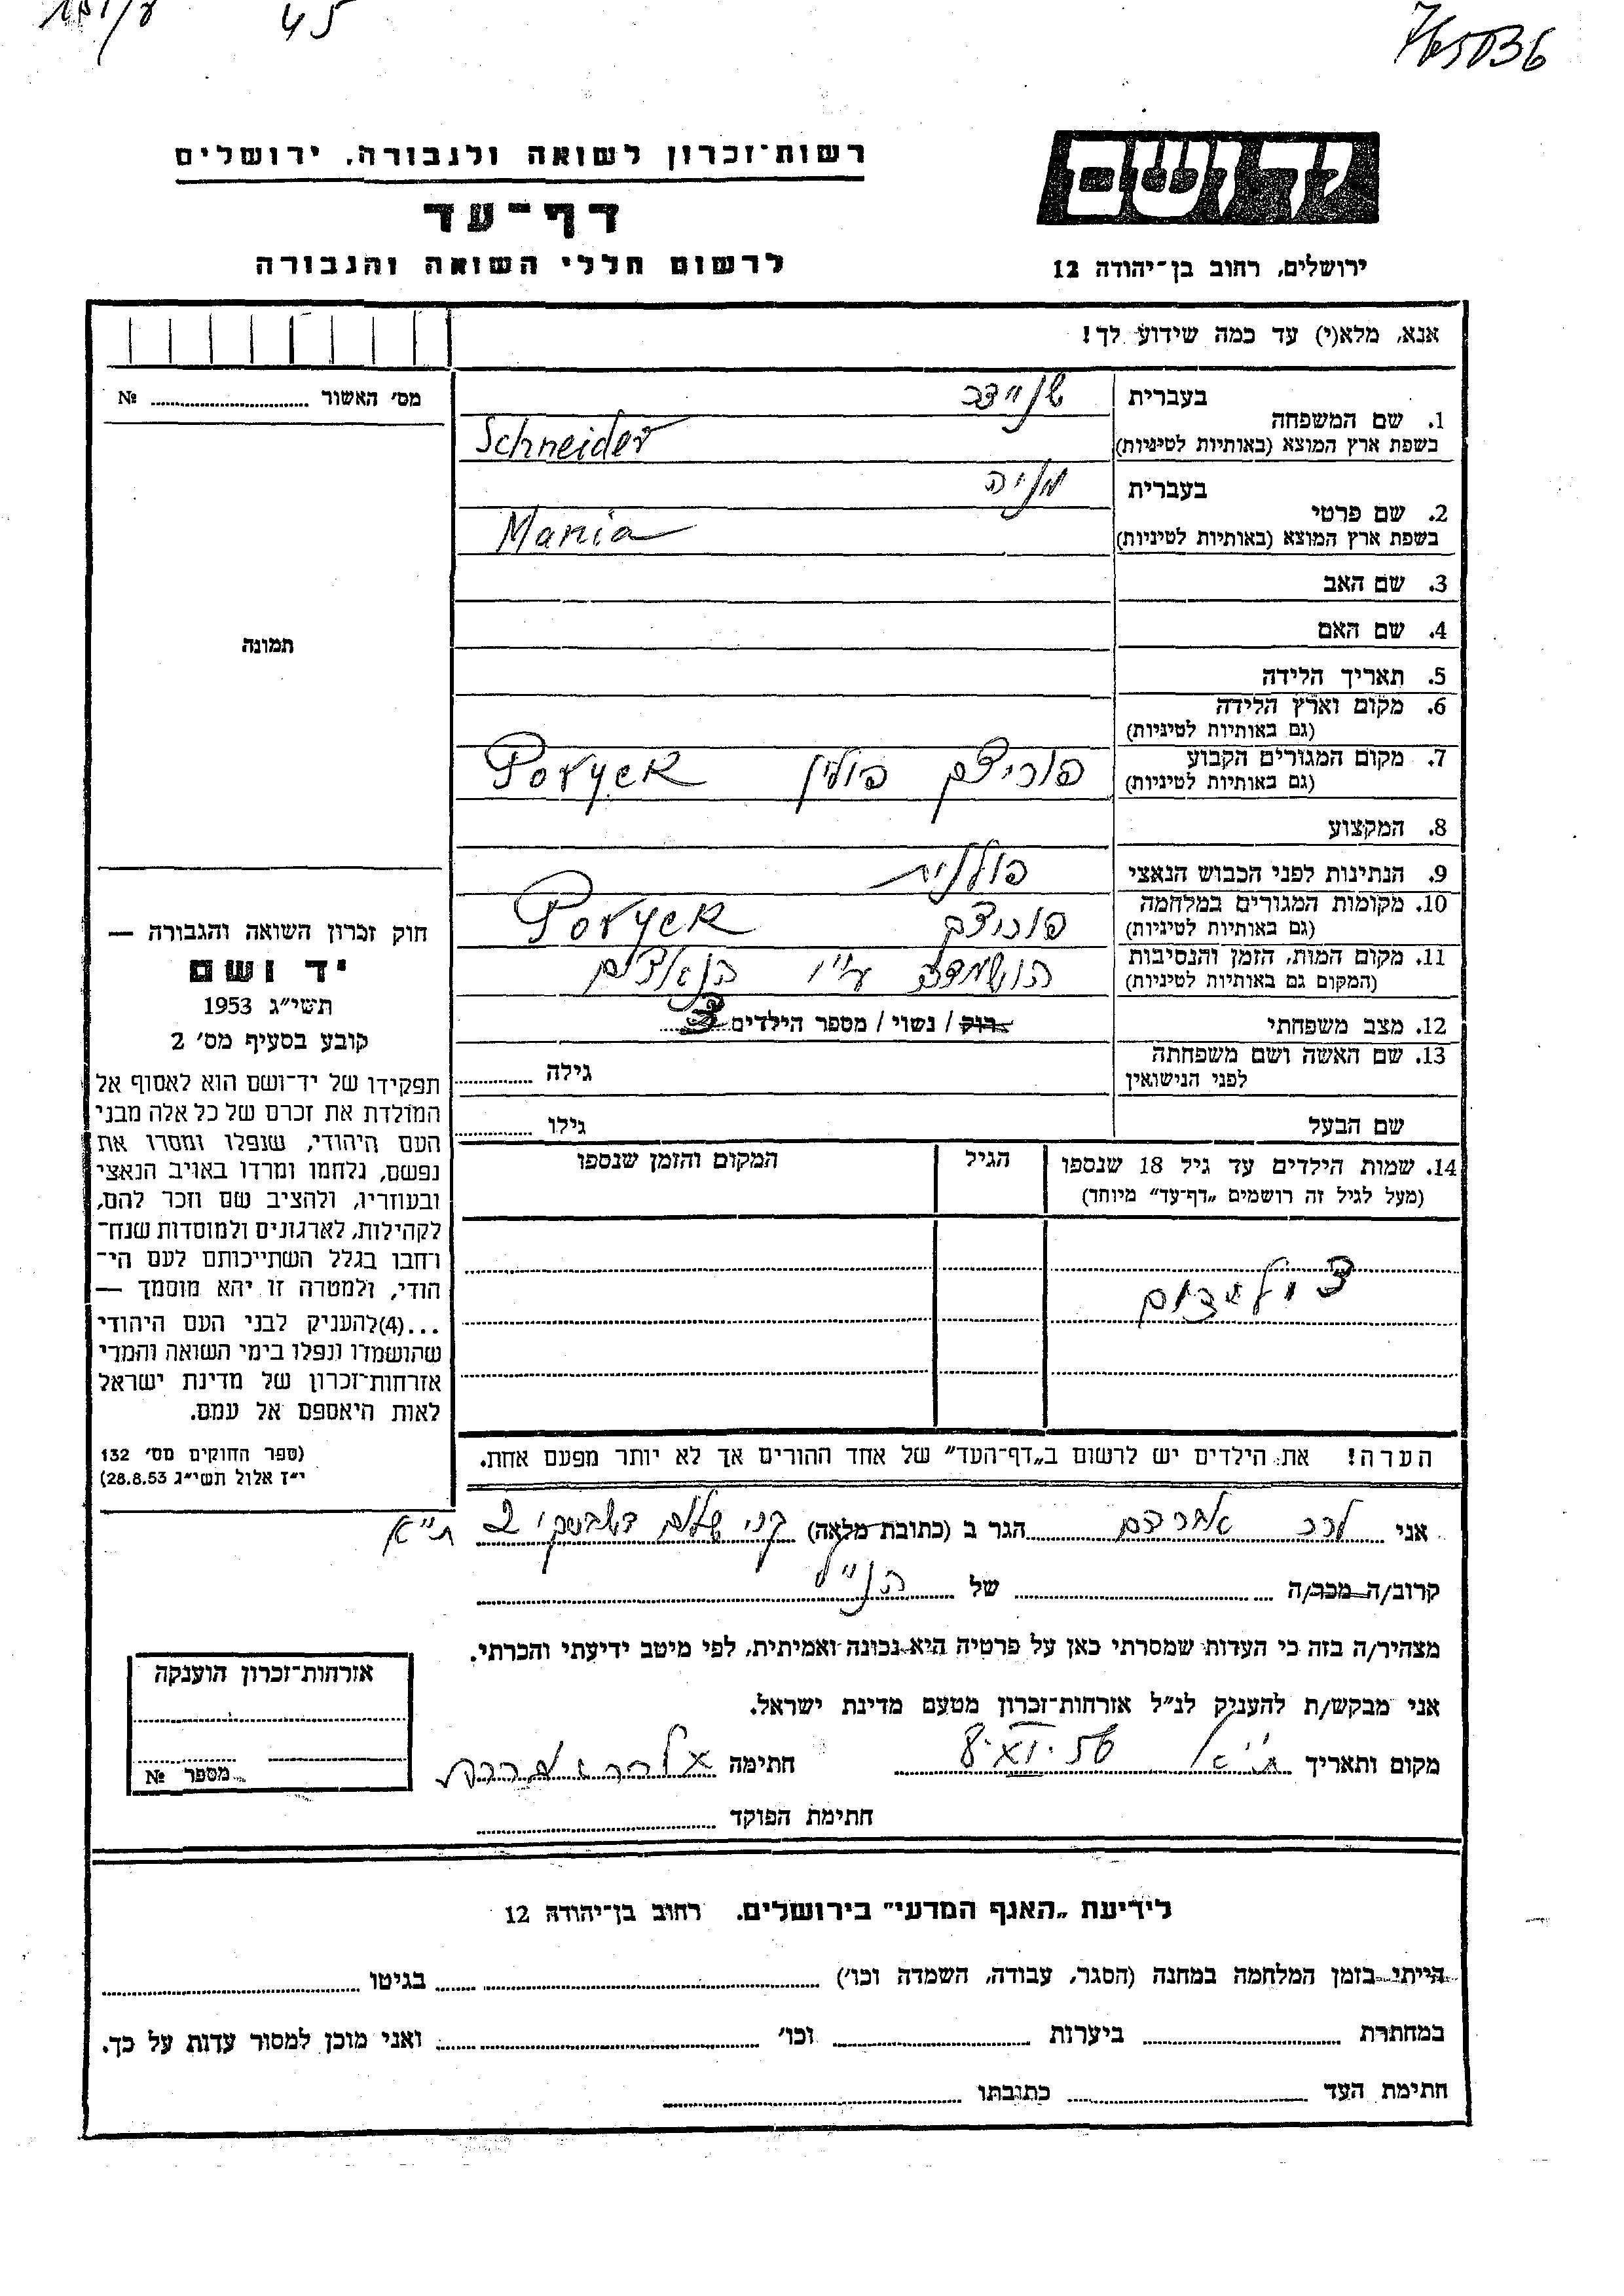 45
765036
רשות־זכרון לשואה ולגבורה, ירושלים
יד ושם
דף־עד
לרשום חללי השואה והגבורה
ירושלים, רחוב בן־יהודה 12
אנא, מלא(י) עד כמה שידוע לך!
מס׳ האשור ........ №
1. שם המשפחה
בעברית
שניידר
בשפת ארץ המוצא (באותיות לטיניות)
Schneider
2. שם פרטי
בעברית
מניה
בשפת ארץ המוצא (באותיות לטיניות)
Mania
3. שם האב
4. שם האם
תמונה
5. תאריך הלידה
6. מקום וארץ הלידה
(גם באותיות לטיניות)
7. מקום המגורים הקבוע
(גם באותיות לטיניות)
פוריצק פולין Poryck
8. המקצוע
9. הנתינות לפני הכבוש הנאצי
פולנית
10. מקומות המגורים במלחמה
(גם באותיות לטיניות)
פוריצק Poryck
11. מקום המות, הזמן והנסיבות
(המקום גם באותיות לטיניות)
הושמדה ע״י הנאצים
12. מצב משפחתי
רוק / נשוי / מספר הילדים 3
13. שם האשה ושם משפחתה
לפני הנישואין
גילה
שם הבעל
גילו
14. שמות הילדים עד גיל 18 שנספו
(מעל לגיל זה רושמים „דף־עד” מיוחד)
הגיל
המקום והזמן שנספו
3 ילדים
הערה! את הילדים יש לרשום ב„דף־העד” של אחד ההורים אך לא יותר מפעם אחת.
חוק זכרון השואה והגבורה —
יד ושם
תשי״ג 1953
קובע בסעיף מס׳ 2
תפקידו של יד־ושם הוא לאסוף אל
המולדת את זכרם של כל אלה מבני
העם היהודי, שנפלו ומסרו את
נפשם, נלחמו ומרדו באויב הנאצי
ובעוזריו, ולהציב שם וזכר להם,
לקהילות, לארגונים ולמוסדות שנח־
רחבו בגלל השתייכותם לעם הי־
הודי, ולמטרה זו יהא מוסמך —
...(4)להעניק לבני העם היהודי
שהושמדו ונפלו בימי השואה והמרי
אזרחות־זכרון של מדינת ישראל
לאות היאספם אל עמם.
(ספר החוקים מס׳ 132
י״ז אלול תשי״ג 28.8.53)
אני אברהם הגר ב (כתובת מלאה) 2 ת״א
קרוב/ה מכר/ה של הנ״ל
מצהיר/ה בזה כי העדות שמסרתי כאן על פרטיה היא נכונה ואמיתית, לפי מיטב ידיעתי והכרתי.
אני מבקש/ת להעניק לנ״ל אזרחות־זכרון מטעם מדינת ישראל.
מקום ותאריך ת״א 8.VI.56 חתימה
חתימת הפוקד
אזרחות־זכרון הוענקה
מספר №
לידיעת „האגף המדעי” בירושלים. רחוב בן־יהודה 12
הייתי בזמן המלחמה במחנה (הסגר, עבודה, השמדה וכו׳) בגיטו
במחתרת ביערות וכו׳ ואני מוכן למסור עדות על כך.
חתימת העד כתובתו